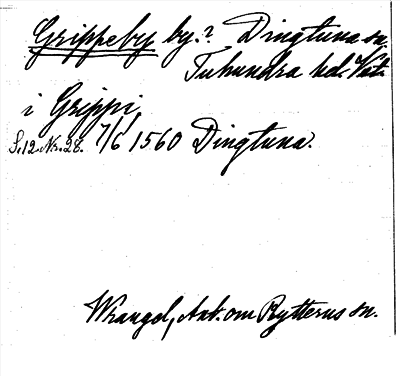 Grippeby by.? Dingtuna sn.
Tuhundra hd. Väst.
i Grippi,
S. 12. Nr. 28. 7/6 1560 Dingtuna.
Wrangel, Ant. om Rytterns sn.